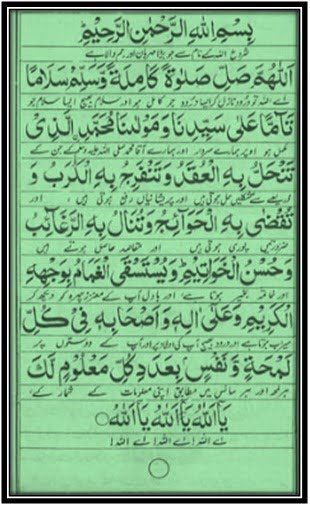 بِسْمِ اللهِ الرَّحْمٰنِ الرَّحِيْمِ
شروع اللہ کے نام سے جو بڑا مہربان اور رحم والا ہے
اَللّٰهُمَّ صَلِّ صَلٰوةً كَامِلَةً وَّسَلِّمْ سَلَامًا
اے اللہ تو درود نازل کر ایسا درود جو کامل ہو اور سلام بھیج ایسا سلام جو
تَآمًّا عَلٰى سَيِّدِنَا وَمَوْلٰىنَا مُحَمَّدِ ۨالَّذِىْ
مکمل ہو اوپر ہمارے سردار اور ہمارے آقا محمد صلی اللہ علیہ وسلم کے جن کے
تَنْحَلُّ بِهِ الْعُقَدُ وَتَنْفَرِجُ بِهِ الْكُرَبُ وَ
مشکلیں حل ہوجاتی ہیں اور پریشانیاں رفع ہوتی ہیں، اور
تُقْضٰى بِهِ الْحَوَآئِجُ وَتُنَالُ بِهِ الرَّغَآئِبُ
ضرورتیں پوری ہوتی ہیں اور مقاصد حاصل ہوتے ہیں
وَحُسْنُ الْخَوَاتِيْمِ وَيُسْتَسْقَى الْغَمَامُ بِوَجْهِهِ
اور خاتمہ بخیر ہوتا ہے اور بادل آپ کے معزز چہرہ کو دیکھ کر
الْكَرِيْمِ وَعَلٰٓى اٰلِهٖ وَاَصْحَابِهٖ فِىْ كُلِّ
ہوتا ہے اور درود بھیج آپ کی اولاد پر اور آپ کے دوستوں پر
لَمْحَةٍ وَّنَفَسٍ بِعَدَدِ كُلِّ مَعْلُوْمٍ لَّكَ
ہر لمحہ اور ہر سانس میں مطابق اپنی معلومات کے شمار کے،
يَآ اَللّٰهُ يَآ اَللّٰهُ يَآ اَللّٰهُ
اے اللہ! اے اللہ! اے اللہ!